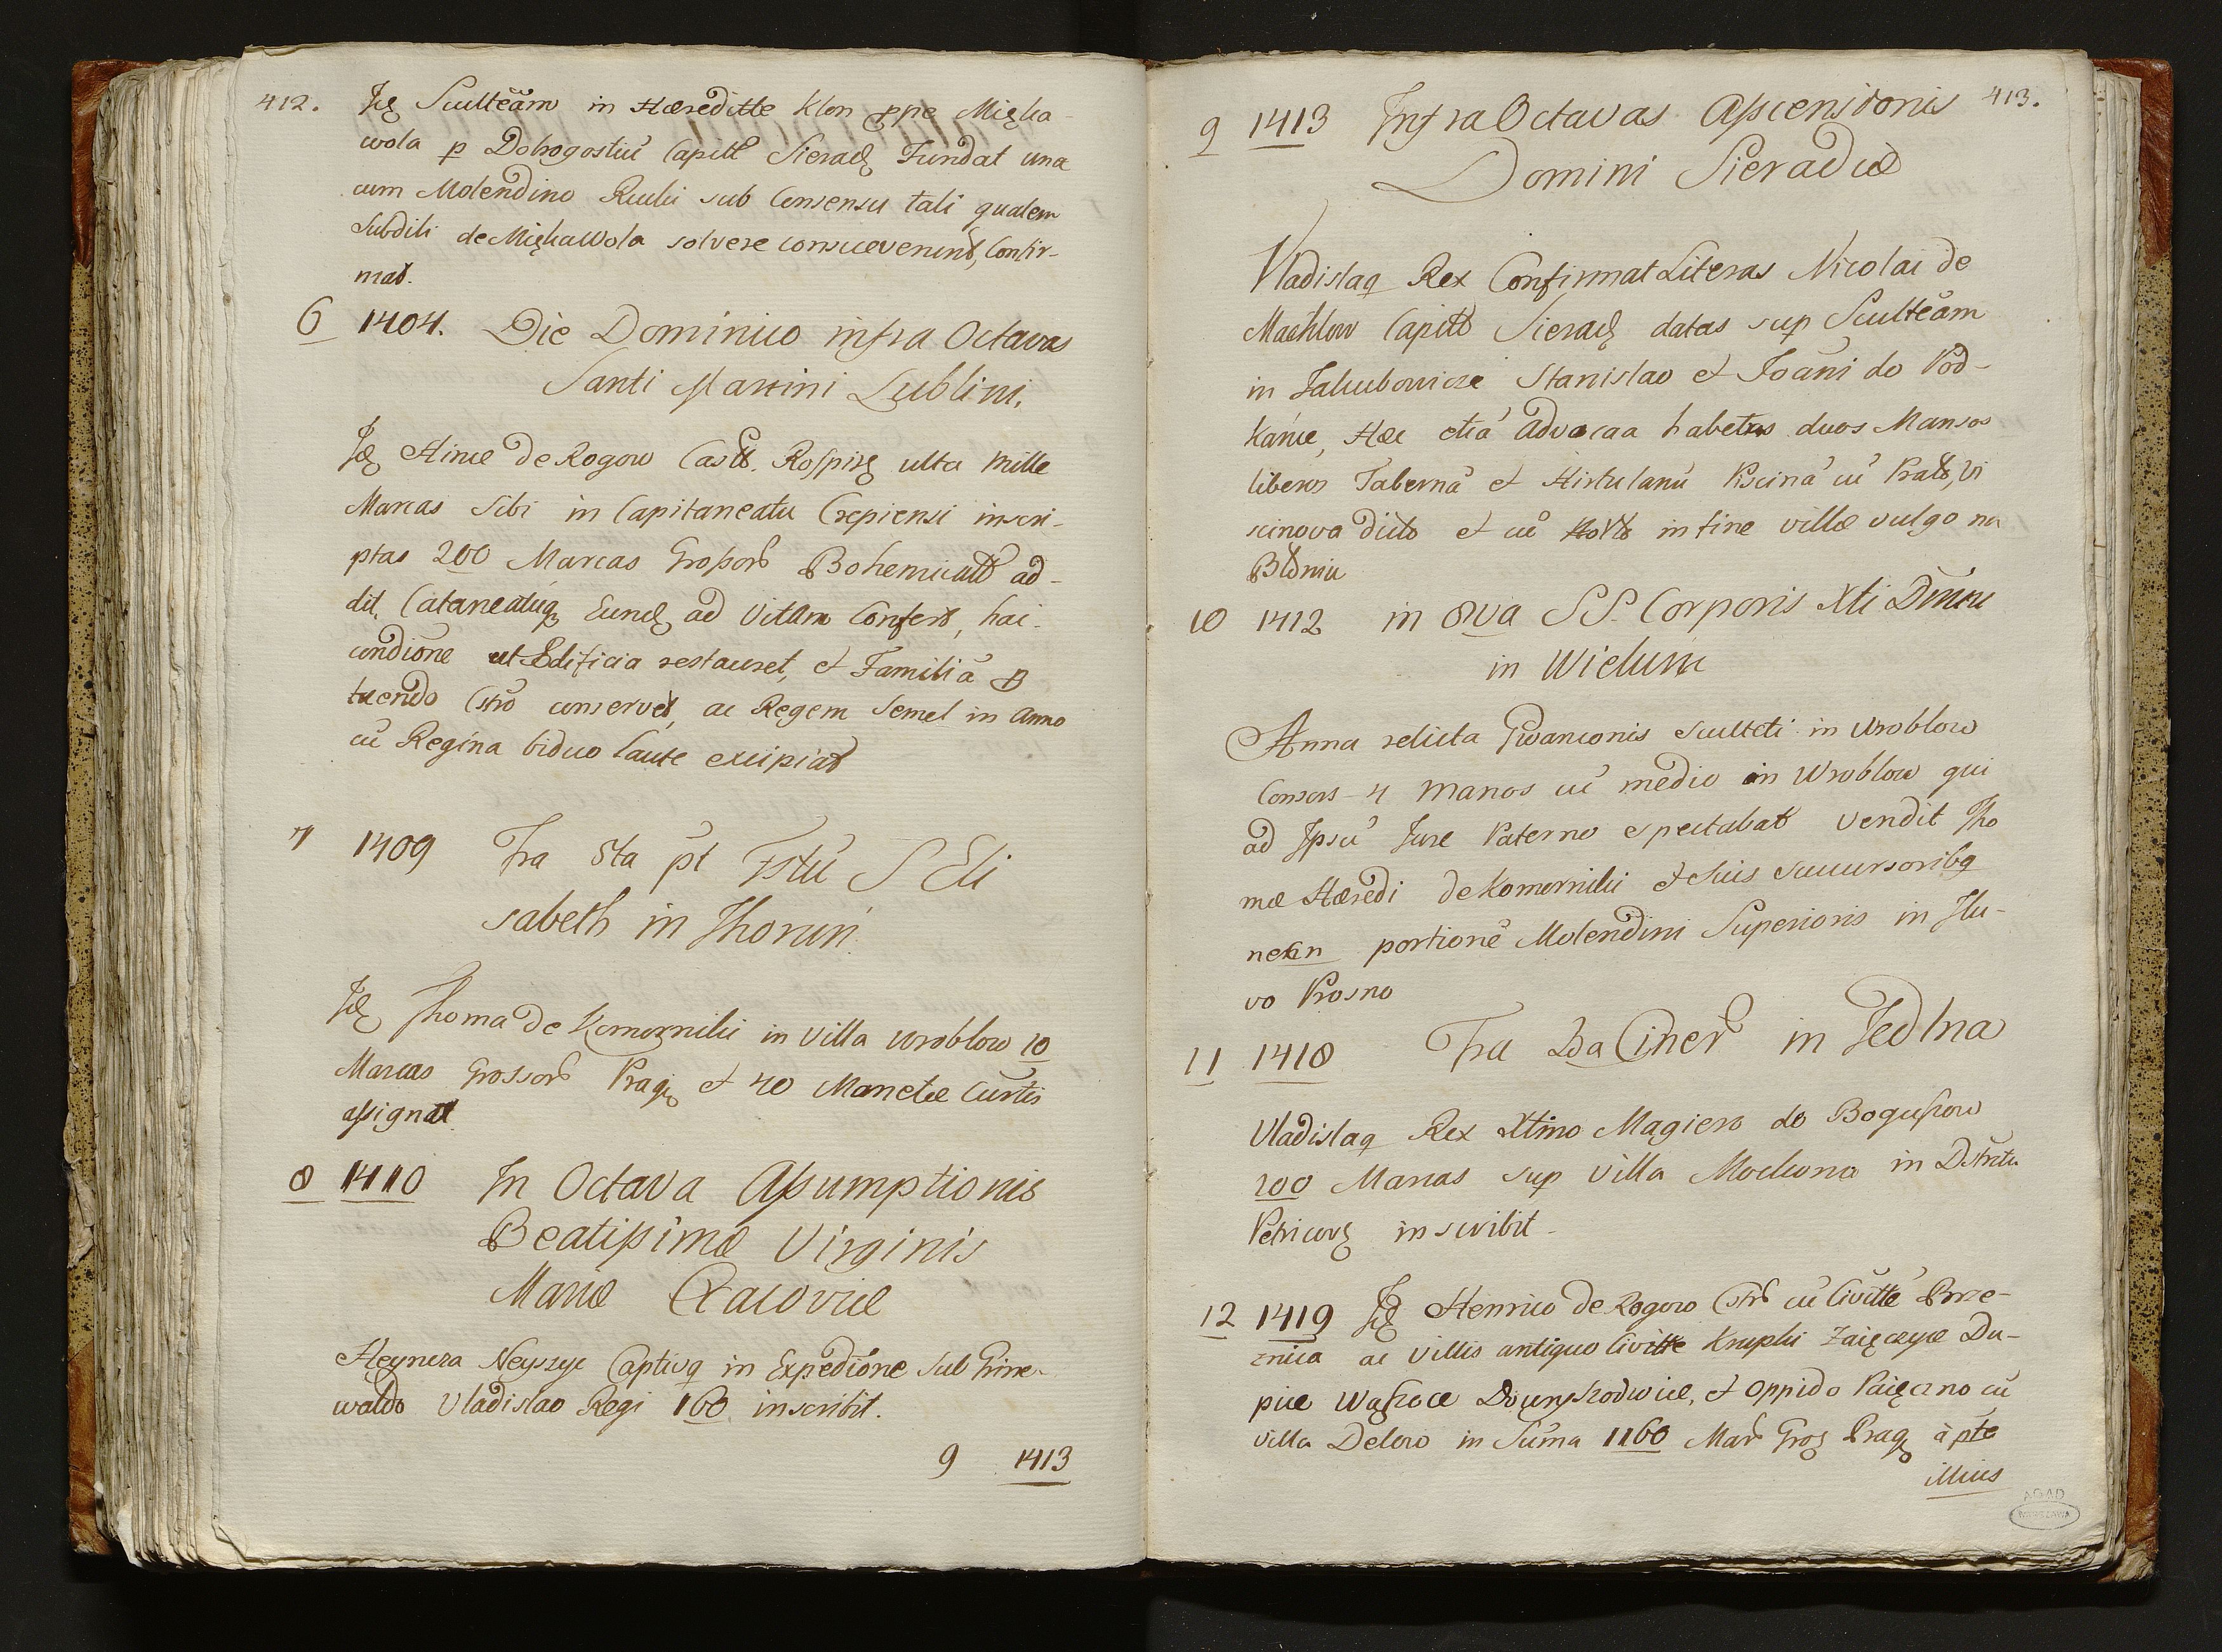 412.
Id Scultĕam in Hæreditte Klon ppe Mięka-
wola p Dobogostiū Capitt Sierad Fundat una
cum Molendino Ruilii sub Consensu tali qualem
Subditi de Mięka Wola solvere consueverint, Confir-
mat.
6 1404. Die Dominico infra Octavas
Santi Martini Lublini.
Id Hince de Rogow Castt. Rospirz ulta Mille
Marcas Sibi in Capitaneatu Crepiensi inscri-
ptas 200 Marcas Groſsor Bohemicatt ad-
dit, Cataneatuq Eund ad Vitam Confert, hac-
condiōne ut Edificia restauret, et Familiā p
tuendo Cstro conservet, ac Regem Semel in Anno
cū Regina biduo laute excipiat
7 1409 Fra 5ta pt Fstū S Eli
sabeth in Thorun
Id Thoma de Komornilii in Villa Wroblow 10
Marcas Grossor Prag et 40 Manetæ Curtis
aſsignat
8 1410 In Octava Aſsumptionis
Beatiſsimæ Virginis
Mariæ Cracoviæ
Heyncza Neyszyc Captivq in Expediōne Sub Grine-
waldo Vladislao Regi 160 inscribit.
9 1413
413.
9 1413 Infra Octavas Aſscensionis
Domini Sieradiæ
Vladislaq Rex Confirmat Literas Nicolai de
Machlow Capitt Sierad datas sup Scultĕam
in Jakubowicze Stanislao et Joāni do Pod-
kanie, Hæc etiā Advocaa habetas duos Mansos
liberos Tabernā et Hirtulanū Piscinā cū Prato, Vi
scinova dicto et cū Horto in fine villæ vulgo na
Błoniu
10 1412 in 8va SS. Corporis Xti Dīnni
in Wieluni
Anna relicta Iwanconis Sculteti in Wroblow
Consors 4 Manos cū medio in Wroblow qui
ad Ipsū Jure Paterno espectabat vendit Tho
mæ Hæredi de Komornilii et Suis Succursoribq
necan portionē Molendini Superioris in Flu-
vo Prosno
11 1418 Fra 2da Ciner in Jedlna
Vladislaq Rex Xtino Magiero do Boguſsow
100 Marcas sup Villa Mockona in Dstrictu
Petricov inscribit
12 1419 Id Henrico de Rogow Cstr cū Civittē Brze-
znica ac Villis antiquo Civitte Kruplii Zaięczye Du-
piie Waſsoce Dounſskodwiie, et Oppido Paięczno cū
villa Delow in Sūma 1160 Mar Gros Prag à pte
illius
AGAD
WARSZAWA